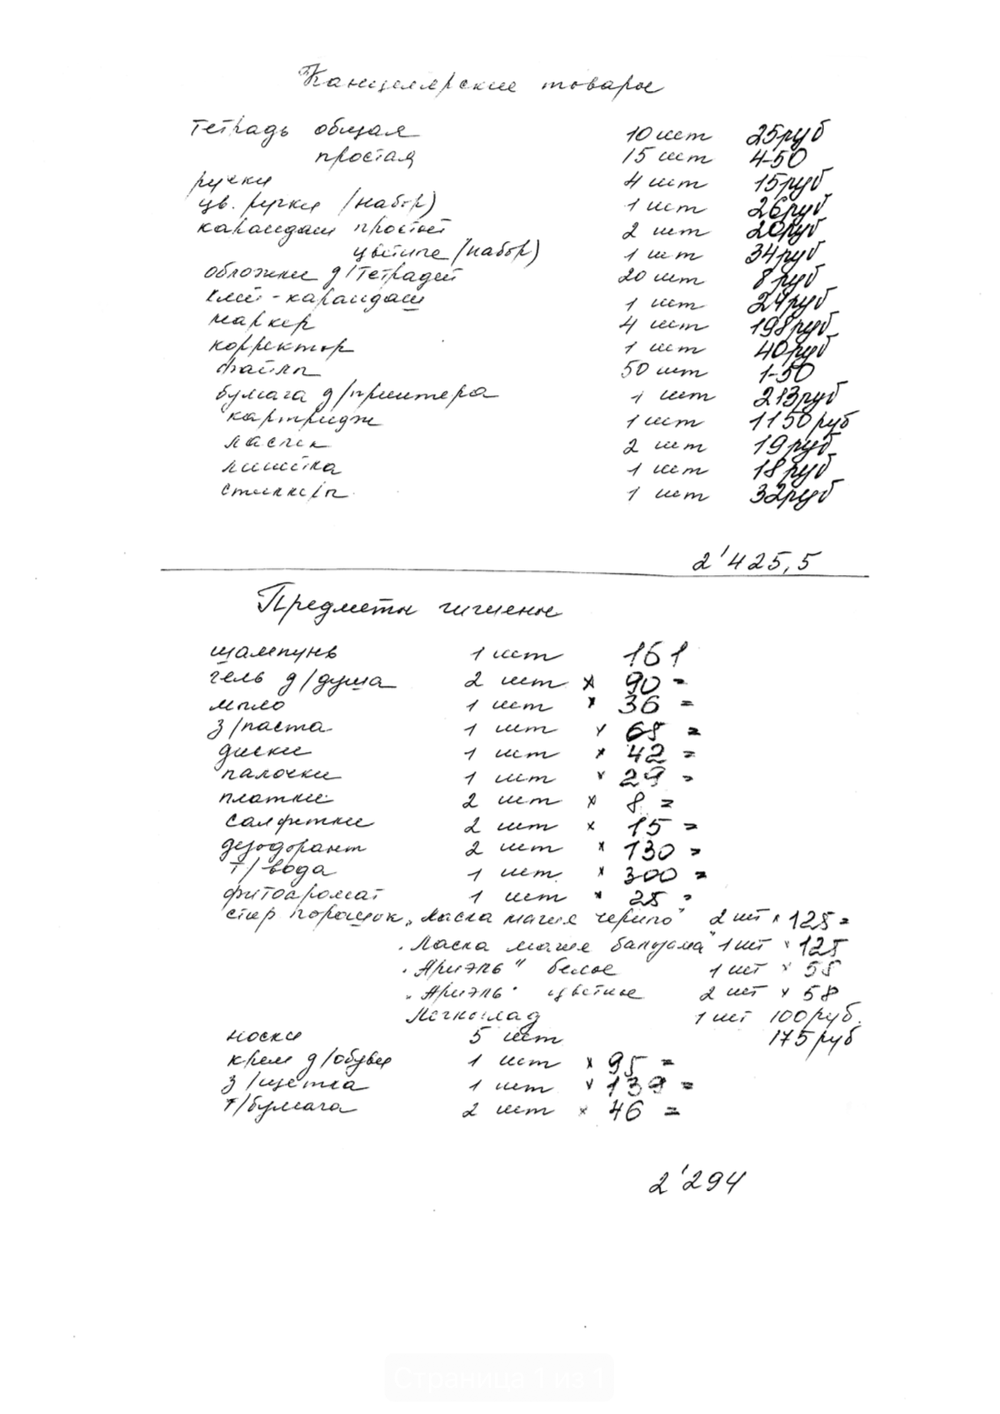 Канцелярские товары
Тетрадь общая 10 шт 25руб
простая 15 шт 4-50
ручки 4 шт 15руб
цв. ручки /набор) 1 шт 26руб
карандаш простой 2 шт 20руб
цветные /набор) 1 шт 34руб
обложки д/тетрадей 20 шт 8руб
клей-карандаш 1 шт 24руб
маркер 4 шт 198руб
корректор 1 шт 40руб
файлы 50 шт 1-50
бумага д/принтера 1 шт 213руб
картридж 1 шт 1150руб
ластик 2 шт 19руб
линейка 1 шт 18руб
стикеры 1 шт 32руб
2'425,5
Предметы гигиены
шампунь 1 шт 161
гель д/душа 2 шт x 90 =
мыло 1 шт x 36 =
з/паста 1 шт x 68 =
диски 1 шт x 42 =
палочки 1 шт x 29 =
платки 2 шт x 8 =
салфетки 2 шт x 15 =
дезодорант 2 шт x 130 =
т/вода 1 шт. x 300 =
фитоаромат 1 шт x 28 =
стир порошок „Ласка магия черного" 2 шт x 125 =
„Ласка магия бальзама" 1 шт x 125
„Ариэль" белое 1 шт x 58
„Ариэль" цветные 2 шт x 58
1 шт 100руб.
носки 5 шт 175руб
крем д/обуви 1 шт x 95 =
з/щетка 1 шт x 139 =
т/бумага 2 шт x 46 =
2'294
Страница 1 из 1